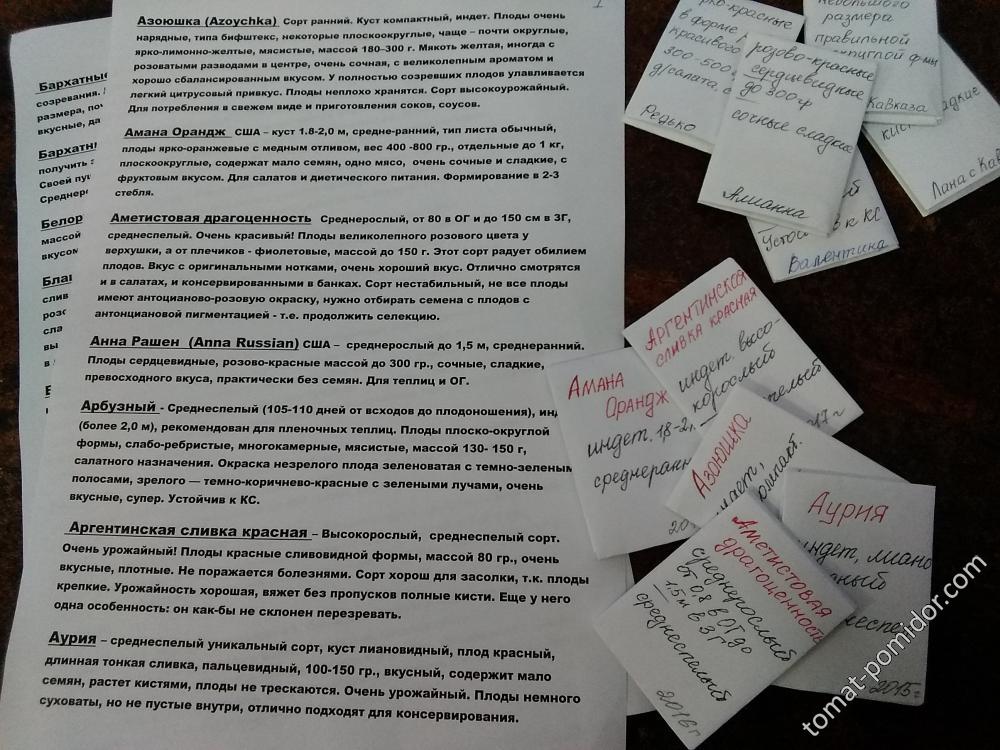 1
Азоюшка (Azoychka) Сорт ранний. Куст компактный, индет. Плоды очень
нарядные, типа бифштекс, некоторые плоскоокруглые, чаще – почти округлые,
ярко-лимонно-желтые, мясистые, массой 180–300 г. Мякоть желтая, иногда с
розоватыми разводами в центре, очень сочная, с великолепным ароматом и
хорошо сбалансированным вкусом. У полностью созревших плодов улавливается
легкий цитрусовый привкус. Плоды неплохо хранятся. Сорт высокоурожайный.
Для потребления в свежем виде и приготовления соков, соусов.
Амана Орандж США – куст 1.8-2,0 м, средне-ранний, тип листа обычный,
плоды ярко-оранжевые с медным отливом, вес 400 -800 гр., отдельные до 1 кг,
плоскоокруглые, содержат мало семян, одно мясо, очень сочные и сладкие, с
фруктовым вкусом. Для салатов и диетического питания. Формирование в 2-3
стебля.
Аметистовая драгоценность Среднерослый, от 80 в ОГ и до 150 см в ЗГ,
среднеспелый. Очень красивый! Плоды великолепного розового цвета у
верхушки, а от плечиков - фиолетовые, массой до 150 г. Этот сорт радует обилием
плодов. Вкус с оригинальными нотками, очень хороший вкус. Отлично смотрятся
и в салатах, и консервированными в банках. Сорт нестабильный, не все плоды
имеют антоциано-розовую окраску, нужно отбирать семена с плодов с
антонциановой пигментацией - т.е. продолжить селекцию.
Анна Рашен (Anna Russian) США – среднерослый до 1,5 м, среднеранний.
Плоды сердцевидные, розово-красные массой до 300 гр., сочные, сладкие,
превосходного вкуса, практически без семян. Для теплиц и ОГ.
Арбузный - Среднеспелый (105-110 дней от всходов до плодоношения), инд
(более 2,0 м), рекомендован для пленочных теплиц. Плоды плоско-округлой
формы, слабо-ребристые, многокамерные, мясистые, массой 130- 150 г,
салатного назначения. Окраска незрелого плода зеленоватая с темно-зеленым
полосами, зрелого — темно-коричнево-красные с зелеными лучами, очень
вкусные, супер. Устойчив к КС.
Аргентинская сливка красная – Высокорослый, среднеспелый сорт.
Очень урожайный! Плоды красные сливовидной формы, массой 80 гр., очень
вкусные, плотные. Не поражается болезнями. Сорт хорош для засолки, т.к. плоды
крепкие. Урожайность хорошая, вяжет без пропусков полные кисти. Еще у него
одна особенность: он как-бы не склонен перезревать.
Аурия – среднеспелый уникальный сорт, куст лиановидный, плод красный,
длинная тонкая сливка, пальцевидный, 100-150 гр., вкусный, содержит мало
семян, растет кистями, плоды не трескаются. Очень урожайный. Плоды немного
суховаты, но не пустые внутри, отлично подходят для консервирования.
Бархатные
созревания.
размера, поч
вкусные, да
Бархатн
получить
Своей пу
Среднер
Белор
массой
вкусом
Бла
слив
розо
сла
вы
в
рко-красные
в форме
красивого
300-500
д/салата, с
Редько
небольшого
размера
правильной
округлой ф-мы
Кавказа
розово-красные
сердцевидные
до 300гр
сочные сладкие
Алианна
адкие
кис
Лана с Кав
Устой в к КС
Валентина
Аргентинская
сливка красная
индет. высо-
корослый
пелый
17 г
Амана
Орандж
индет. 1,8-2
среднеранн
20
Азоюшка
Аметистовая
драгоценность
среднерослый
от 0,8 в ОГ до
1.5м в ЗГ,
среднеспелый
2016 г
Аурия
индет, лиано
ный
неспе
2015 г
tomat-pomidor.com